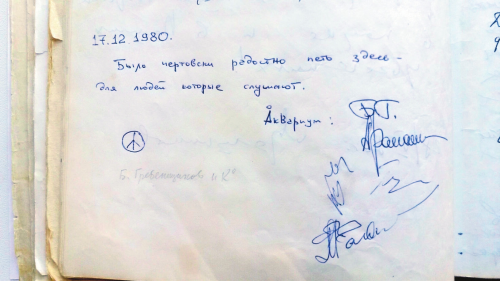 17.12.1980.
Было чертовски радостно петь здесь -
для людей которые слушают.
Аквариум: БГ.
Б. Гребенщиков и К°